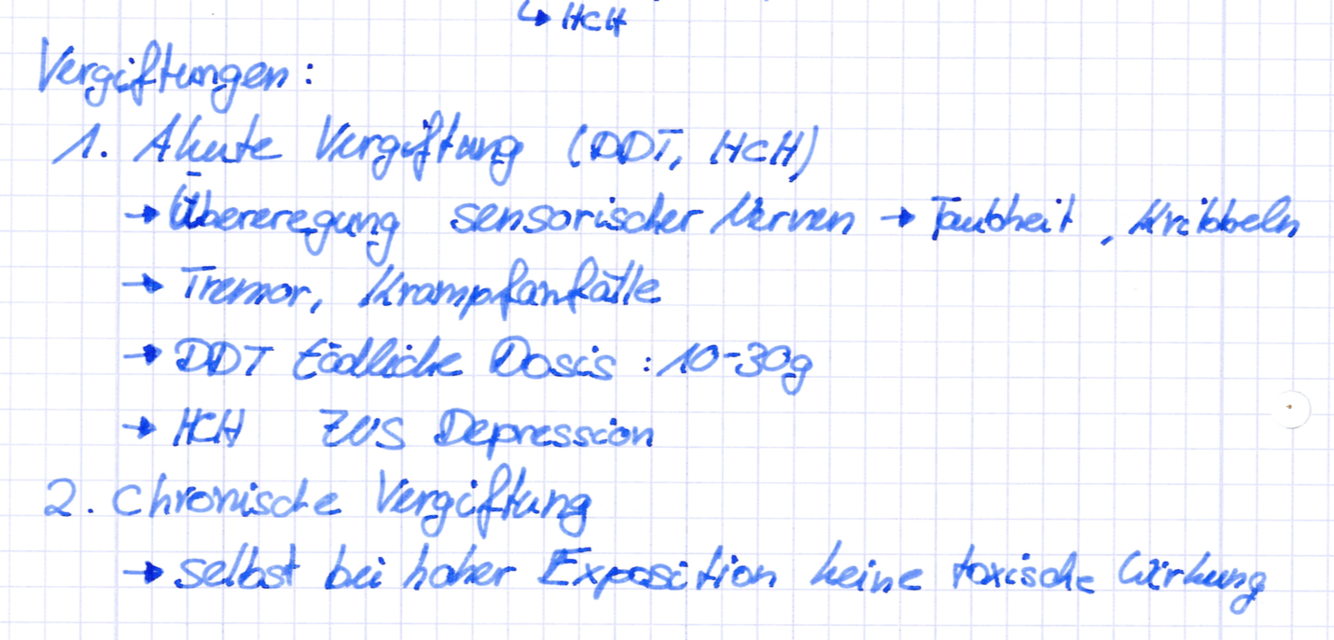 ↳ HCH
Vergiftungen:
1. Akute Vergiftung (DDT, HCH)
→ Übereregung sensorischer Nerven → Taubheit, Kribbeln
→ Tremor, Krampfanfälle
→ DDT tödliche Dosis : 10-30g
→ HCH ZNS Depression
2. Chronische Vergiftung
→ selbst bei hoher Exposition keine toxische Wirkung